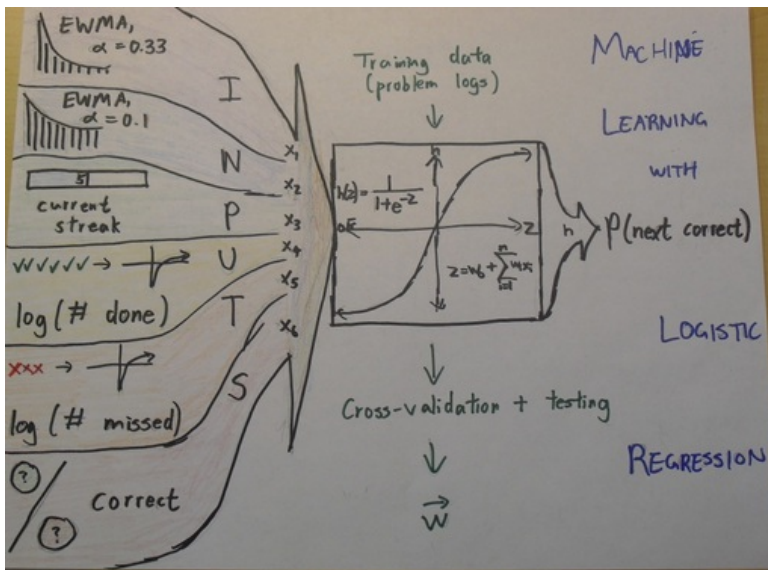 EWMA,
α = 0.33
EWMA,
α = 0.1
5
current
streak
✓✓✓✓✓ →
log (# done)
xxx →
log (# missed)
?
?
correct
I
N
P
U
T
S
x₁
x₂
x₃
x₄
x₅
x₆
Training data
(problem logs)
h
h(z) = 1/(1+e^-z)
z
z = w₀ + Σ wᵢxᵢ
n
i=1
h
P(next correct)
Cross-validation + testing
w⃗
MACHINE
LEARNING
WITH
LOGISTIC
REGRESSION